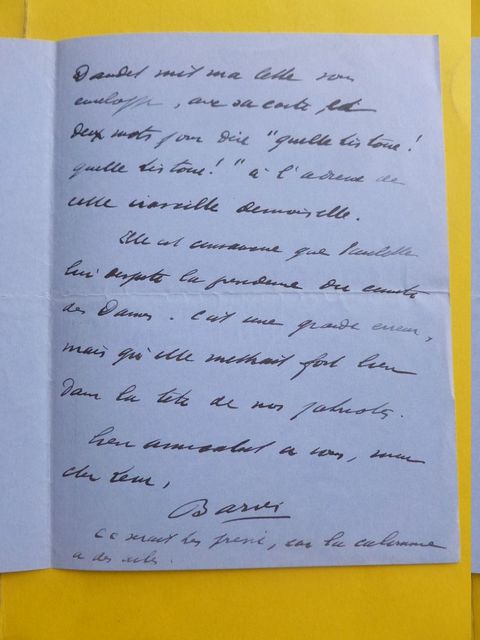 Daudet mit ma lettre sous
enveloppe, avec sa carte et
deux mots pour dire "quelle histoire!
quelle histoire!" à l'adresse de
cette irascible demoiselle.
Elle est convaincue que Paulette
lui dispute la présidence du comité
des Dames. C'est une grande erreur,
mais qu'elle mettrait fort bien
dans la tête de nos patriotes.
bien amicalement à vous, mon
cher
Barrès
Ce serait très pressé, car la calomnie
a des ailes.